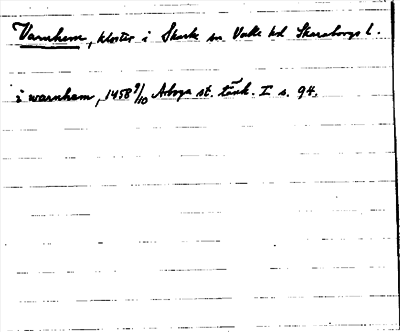 Varnhem, kloster i Skarke sn Valle hd Skaraborgs l.
i warnhem, 1458 9/10 Arboga st. tänk. I s. 94.